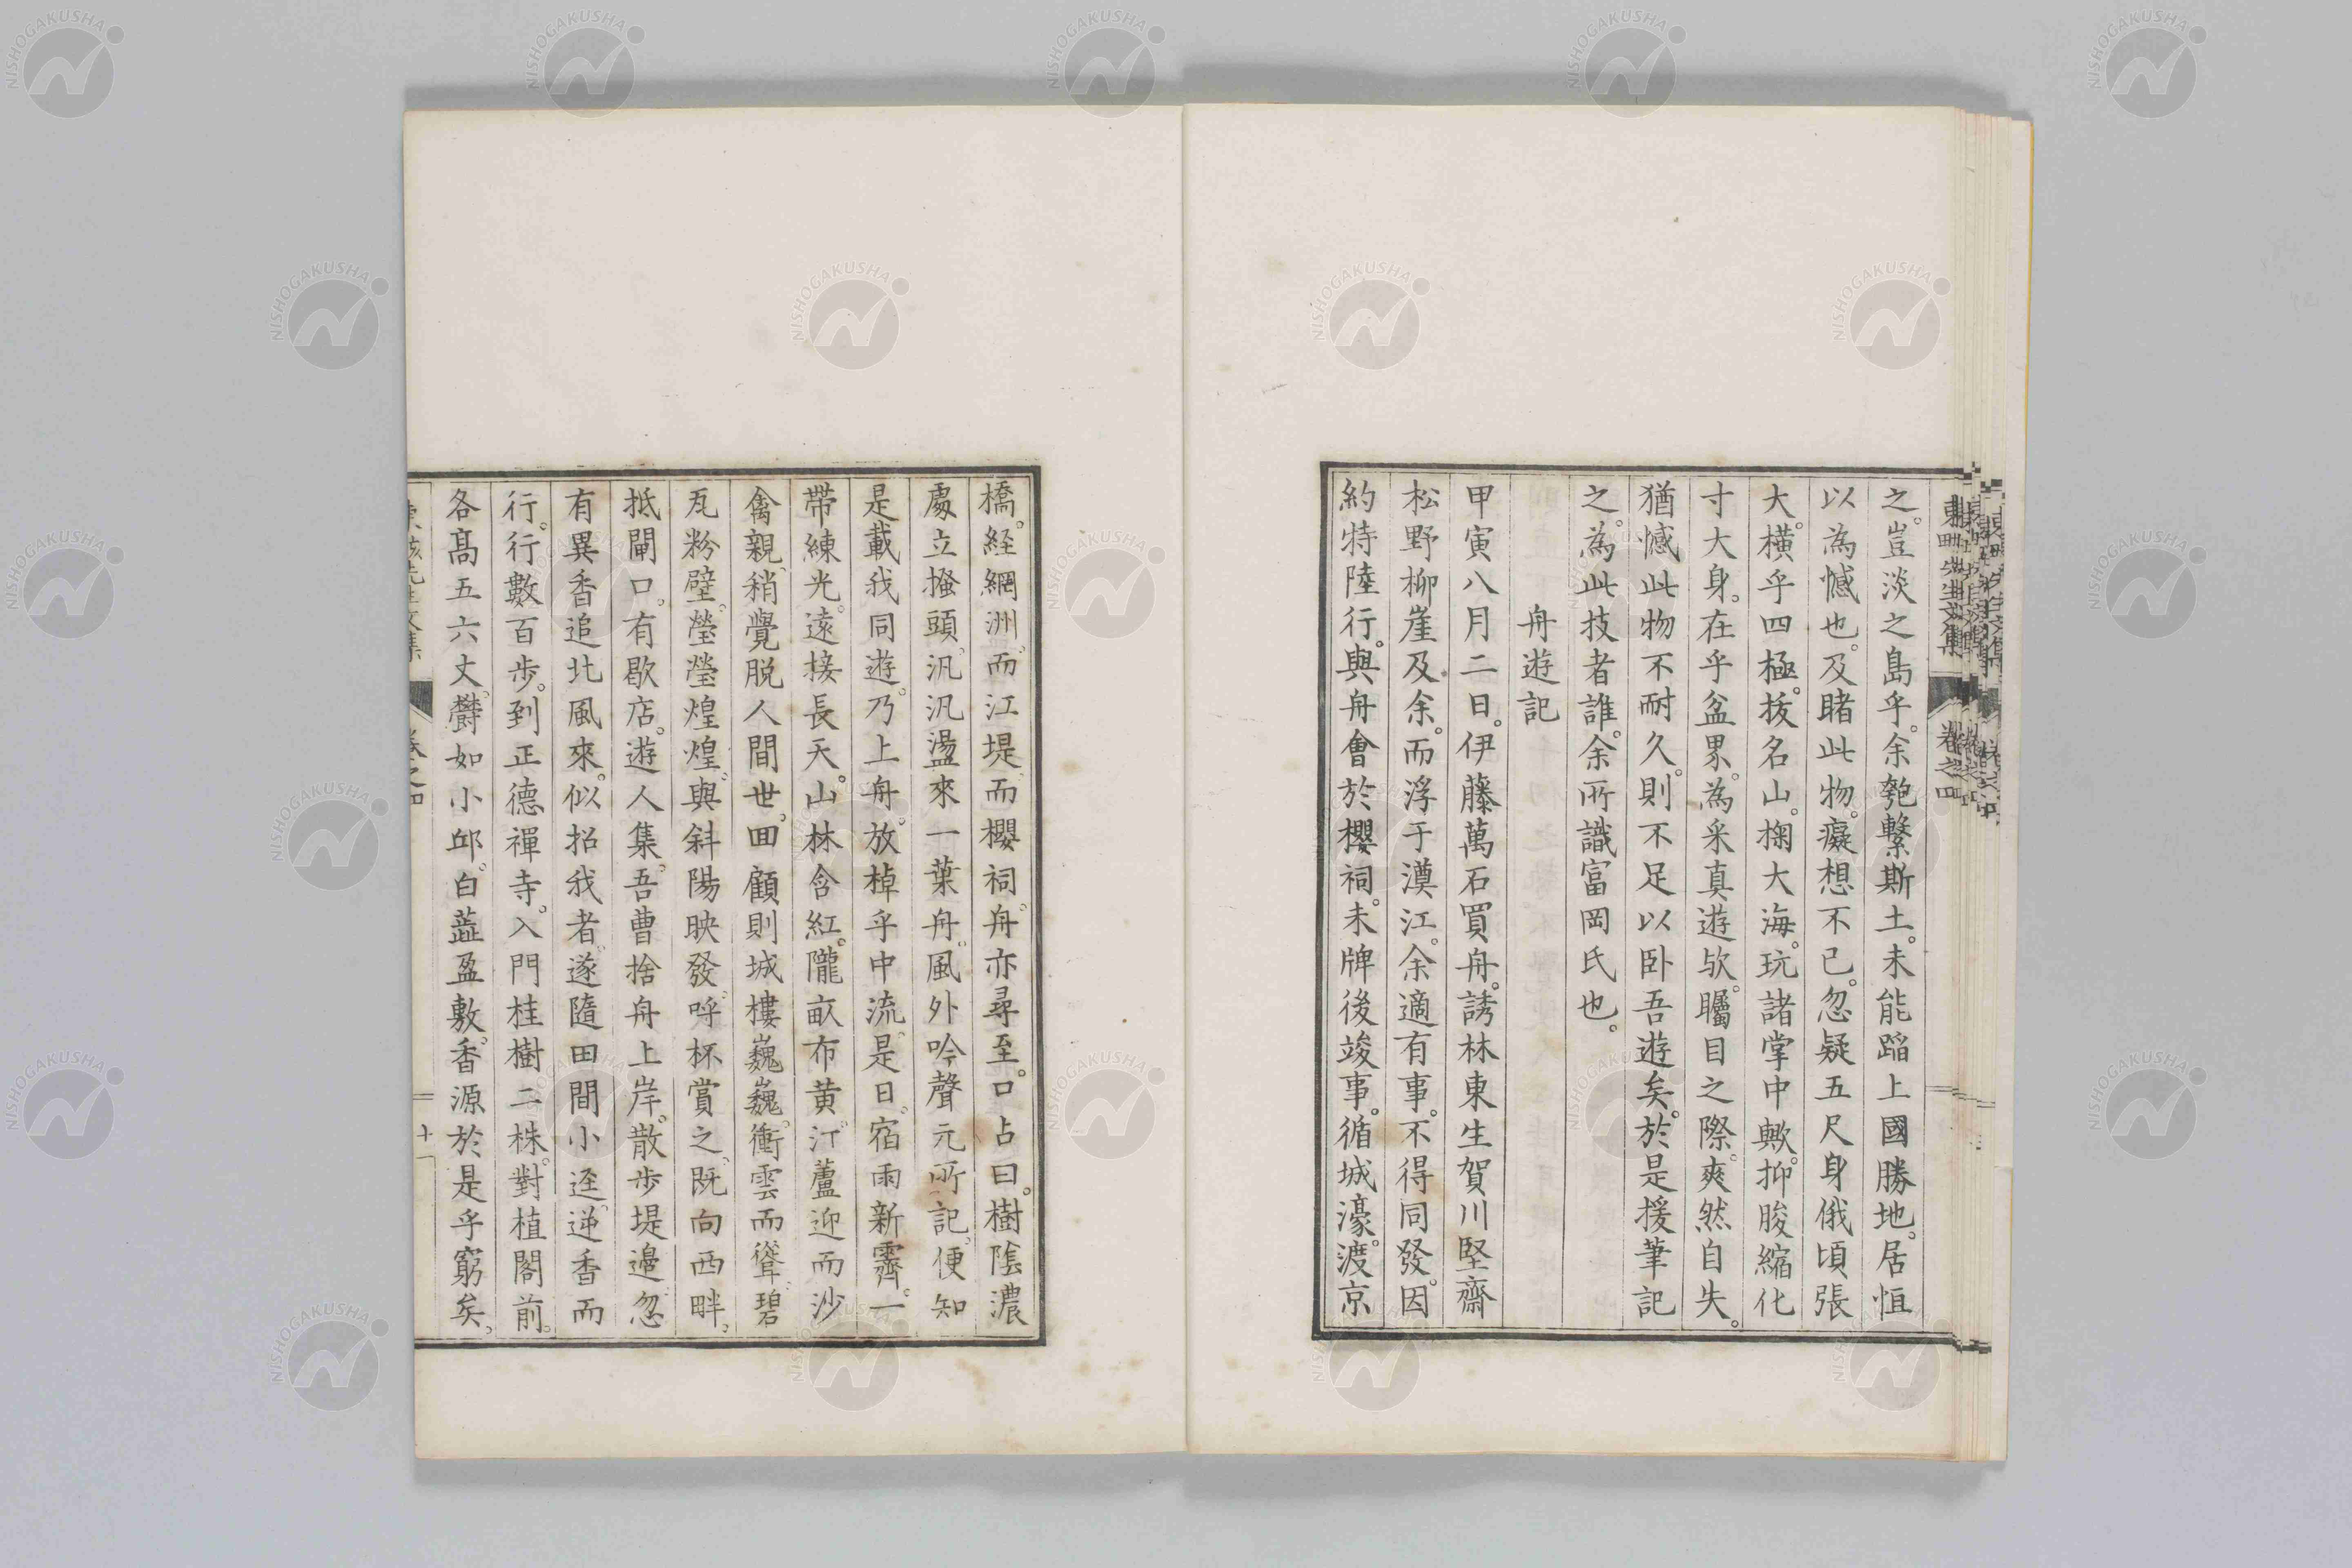 之。豈淡之島乎。余匏繫斯土。未能蹈上國勝地。居恒
以為憾也。及睹此物。癡想不已。忽疑五尺身俄頃張
大。横乎四極。拔名山。掬大海。玩諸掌中歟。抑朘縮化
寸大身。在乎盆界。為采真遊欤。矚目之際。爽然自失。
猶憾此物不耐久。則不足以卧吾遊矣。於是援筆記
之。為此技者誰。余所識富岡氏也。
舟遊記
甲寅八月二日。伊藤萬石買舟。誘林東生賀川堅齋
松野柳崖及余。而浮于澳江。余適有事。不得同發。因
約特陸行。與舟會於櫻祠。未牌後竣事。循城濠。渡京
橋。経綱洲。而江堤。而櫻祠。舟亦尋至。口占曰。樹陰濃
處立搔頭。汎汎盪來一葉舟。風外吟聲元所記。便知
是載我同遊。乃上舟。放棹乎中流。是日。宿雨新霽。一
帶練光。遠接長天。山林含紅。隴畝布黄。汀蘆迎而沙
禽親。稍覺脱人間世。回顧則城樓巍巍。衝雲而聳。碧
瓦粉壁。瑩瑩煌煌。與斜陽映發。呼杯賞之。既向西畔。
抵閘口。有歇店。遊人集。吾曹捨舟上岸。散歩堤邉。忽
有異香追北風來。似招我者。遂隨田間小逕。逆香而
行。行數百歩。到正德禪寺。入門桂樹二株。對植閣前。
各髙五六丈。欝如小邱。白蕋盈敷。香源於是乎窮矣。
卷之四
十一
NISHOGAKUSHA